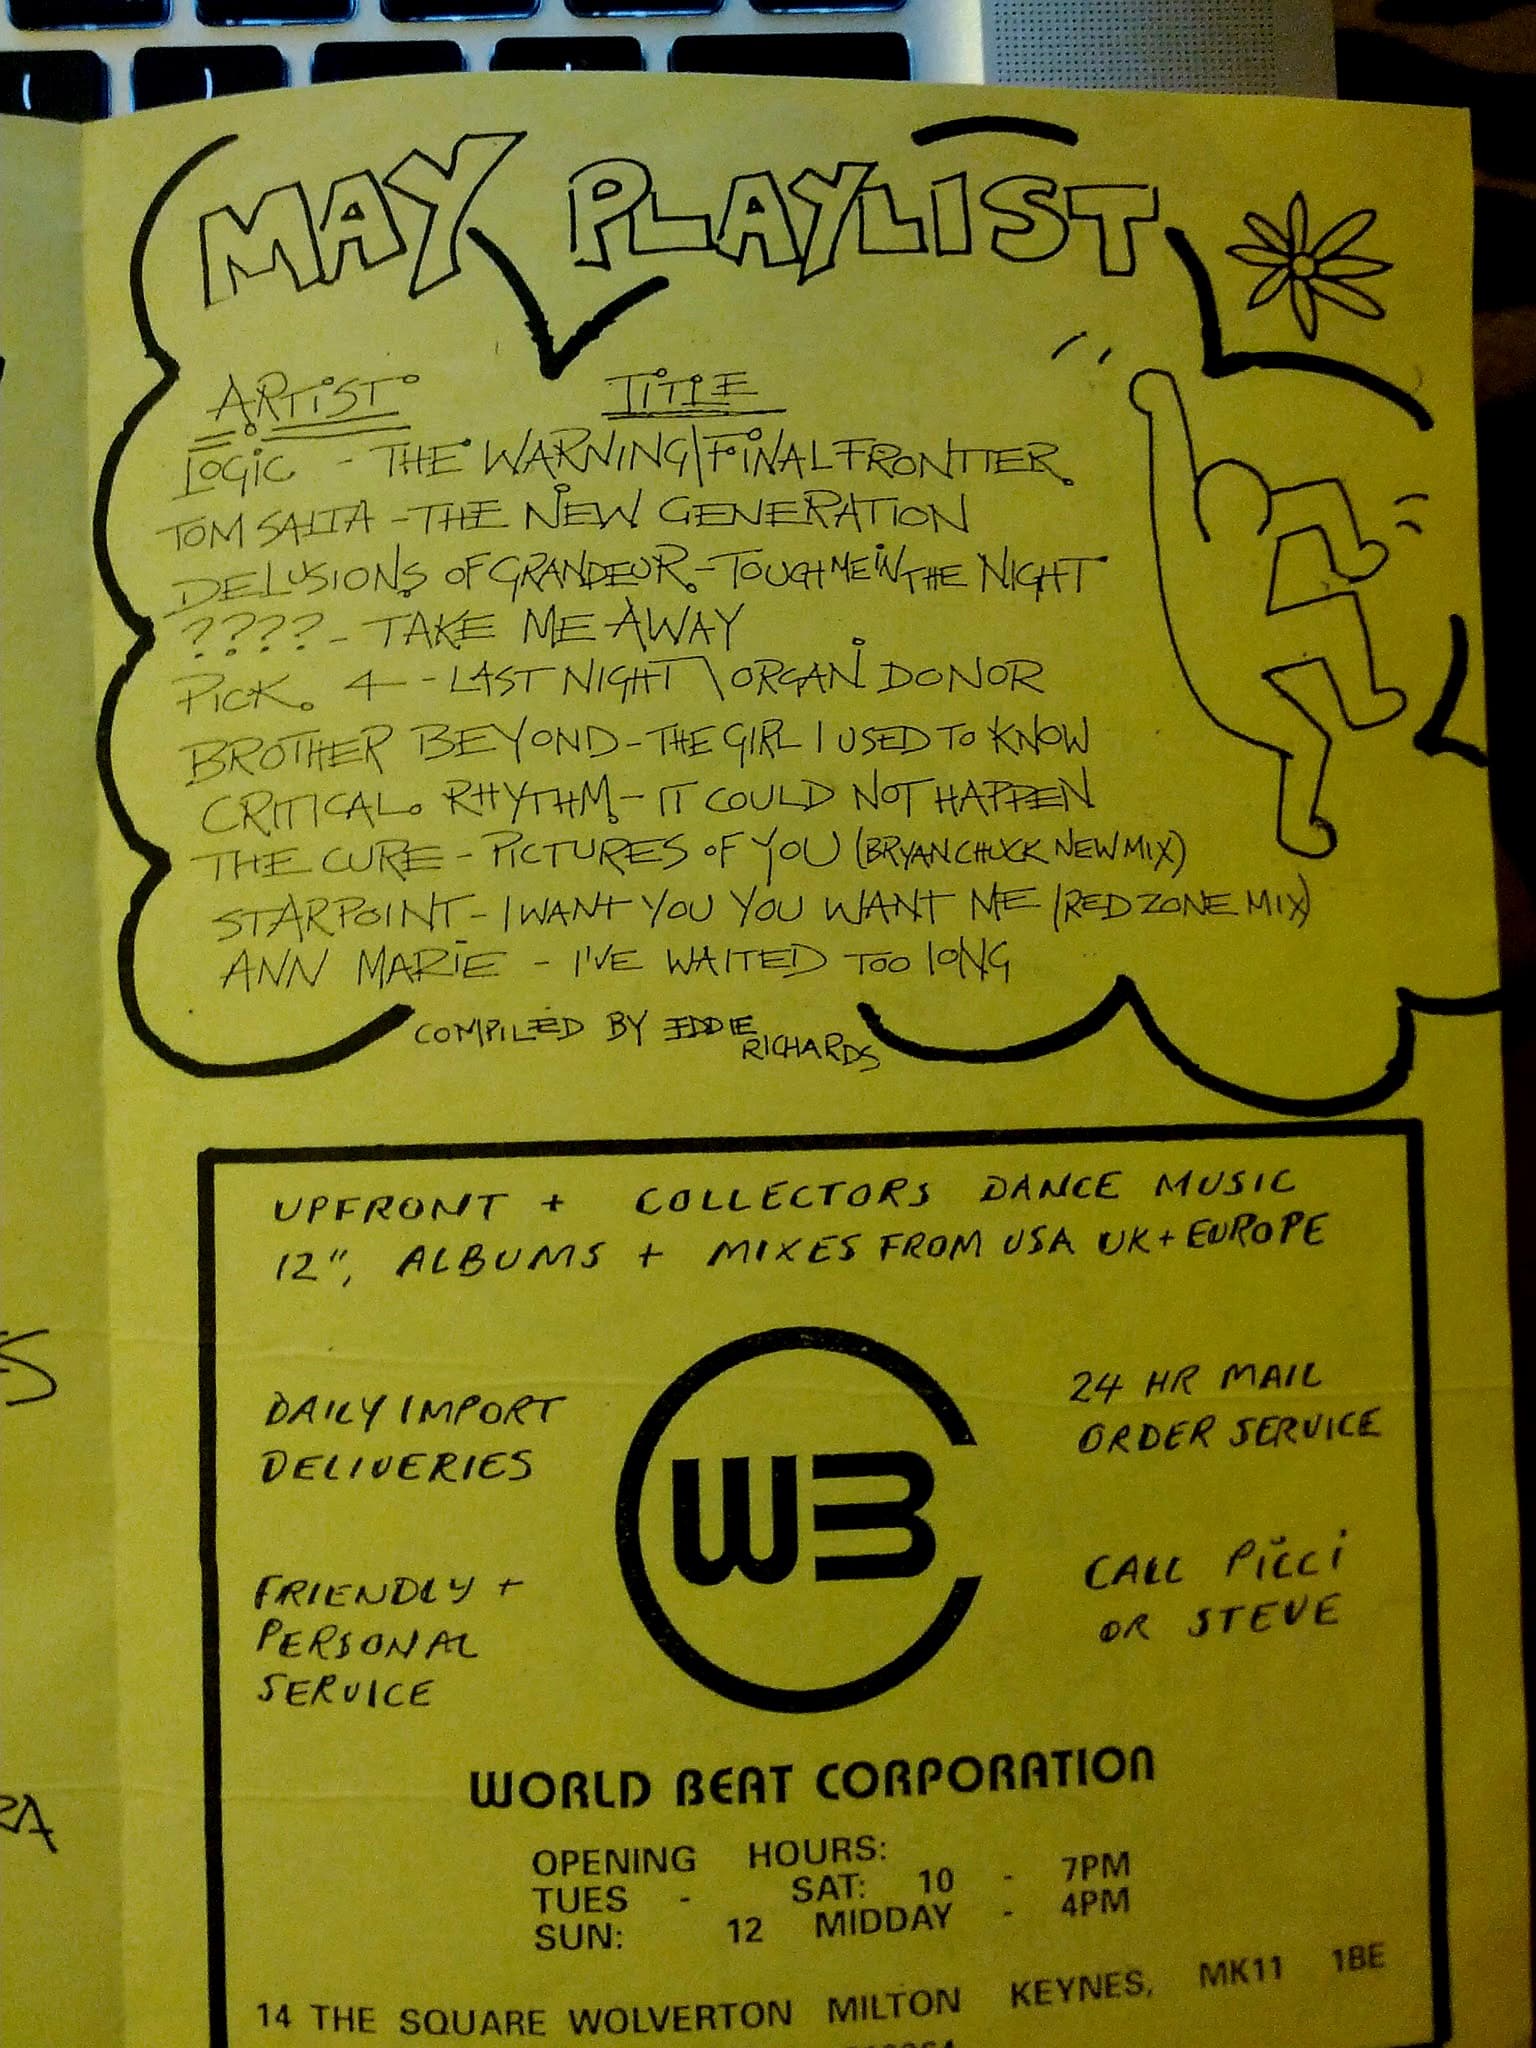 MAY PLAYLIST
ARTIST TITLE
LOGIC - THE WARNING\FINAL FRONTIER
TOM SALTA - THE NEW GENERATION
DELUSIONS OF GRANDEUR - TOUCH ME IN THE NIGHT
???? - TAKE ME AWAY
PICK 4 - LAST NIGHT \ ORGAN DONOR
BROTHER BEYOND - THE GIRL I USED TO KNOW
CRITICAL RHYTHM - IT COULD NOT HAPPEN
THE CURE - PICTURES OF YOU (BRYAN CHUCK NEW MIX)
STARPOINT - I WANT YOU YOU WANT ME (RED ZONE MIX)
ANN MARIE - I'VE WAITED TOO LONG
COMPILED BY EDDIE
RICHARDS
UPFRONT + COLLECTORS DANCE MUSIC
12", ALBUMS + MIXES FROM USA UK + EUROPE
DAILY IMPORT
DELIVERIES
24 HR MAIL
ORDER SERVICE
WB
FRIENDLY +
PERSONAL
SERVICE
CALL PICCI
OR STEVE
WORLD BEAT CORPORATION
OPENING HOURS:
TUES - SAT: 10 - 7PM
SUN: 12 MIDDAY - 4PM
14 THE SQUARE WOLVERTON MILTON KEYNES, MK11 1BE